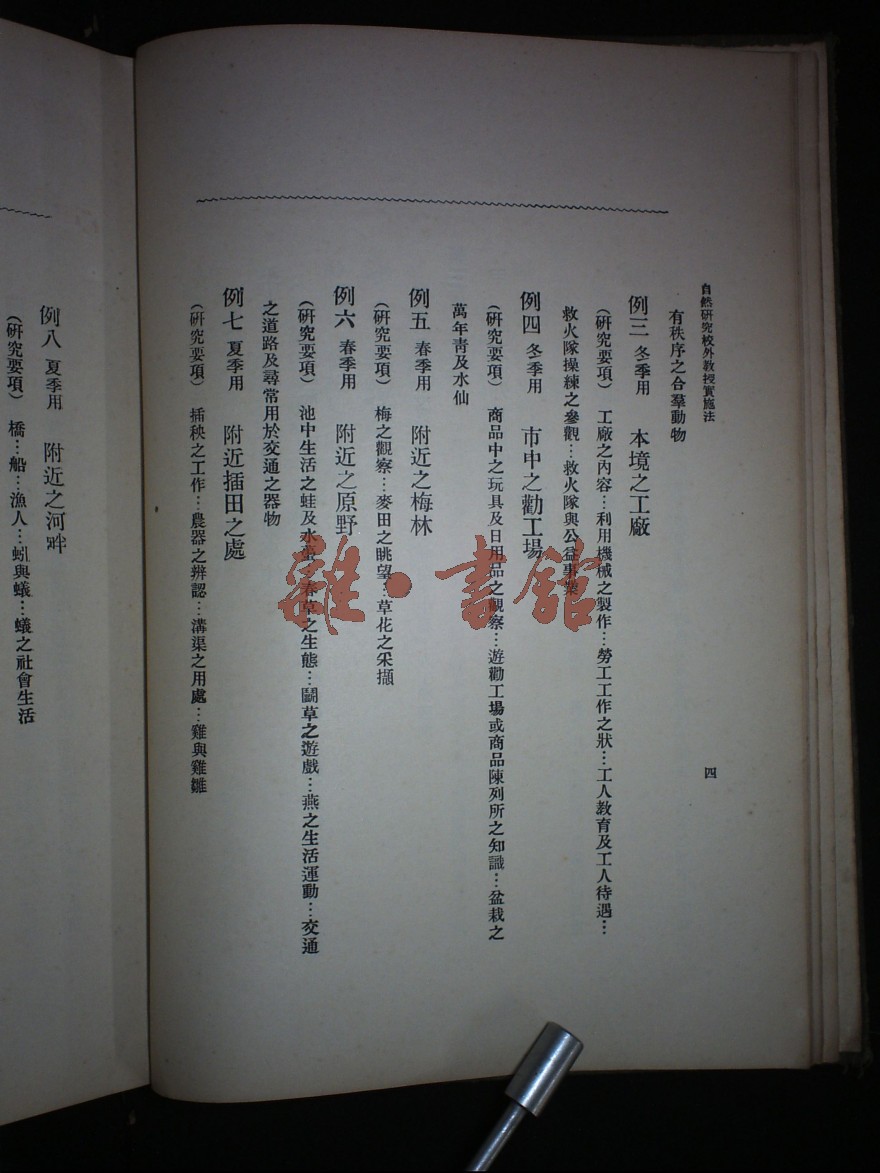 自然研究校外教授實施法
四
有秩序之合羣動物
例三 冬季用 本境之工廠
(研究要項) 工廠之內容…利用機械之製作…勞工工作之狀…工人教育及工人待遇…
救火隊操練之參觀…救火隊與公益事業
例四 冬季用 市中之勸工場
(研究要項) 商品中之玩具及日用品之觀察…遊勸工場或商品陳列所之知識…盆栽之
萬年青及水仙
例五 春季用 附近之梅林
(研究要項) 梅之觀察…麥田之眺望…草花之采擷
例六 春季用 附近之原野
(研究要項) 池中生活之蛙及水蠆…春草之生態…鬭草之遊戲…燕之生活運動…交通
之道路及尋常用於交通之器物
例七 夏季用 附近插田之處
(研究要項) 插秧之工作…農器之辨認…溝渠之用處…雞與雞雛
例八 夏季用 附近之河畔
(研究要項) 橋…船…漁人…蚓與蟻…蟻之社會生活
雜·書館